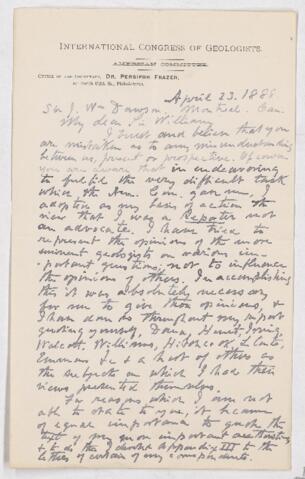 INTERNATIONAL CONGRESS OF GEOLOGISTS.
AMERICAN COMMITTEE.
OFFICE OF THE SECRETARY, DR. PERSIFOR FRAZER,
Philadelphia.
April 23. 1888
Sir J. Wm Dawson Montreal. Can.
My dear Sir William;
I trust and believe that you
are mistaken as to any misunderstanding
between us, present or prospective. Of course
you are aware that in endeavoring
to fulfil the very difficult task
which the Am. Com. gave me, I
adopted as my basis of action the
view that I was a Reporter not
an advocate. I have tried to
represent the opinions of the more
eminent geologists on various im-
portant questions, not to influence
the opinions of others. In accomplishing
this it was absolutely necessary
for me to give their opinions, &
I have done so throughout my report
quoting yourself, Dana, Hunt, Irving,
Walcott, Williams, Hitchcock, Le Conte,
Emmons &c & a host of others as
the subjects on which I had their
views presented themselves.
For reasons which I am not
able to state to you, it became
of equal importance to quote the
text of my more important authorities
& to do this I devoted Appendix III to the
letters of certain of my correspondents.